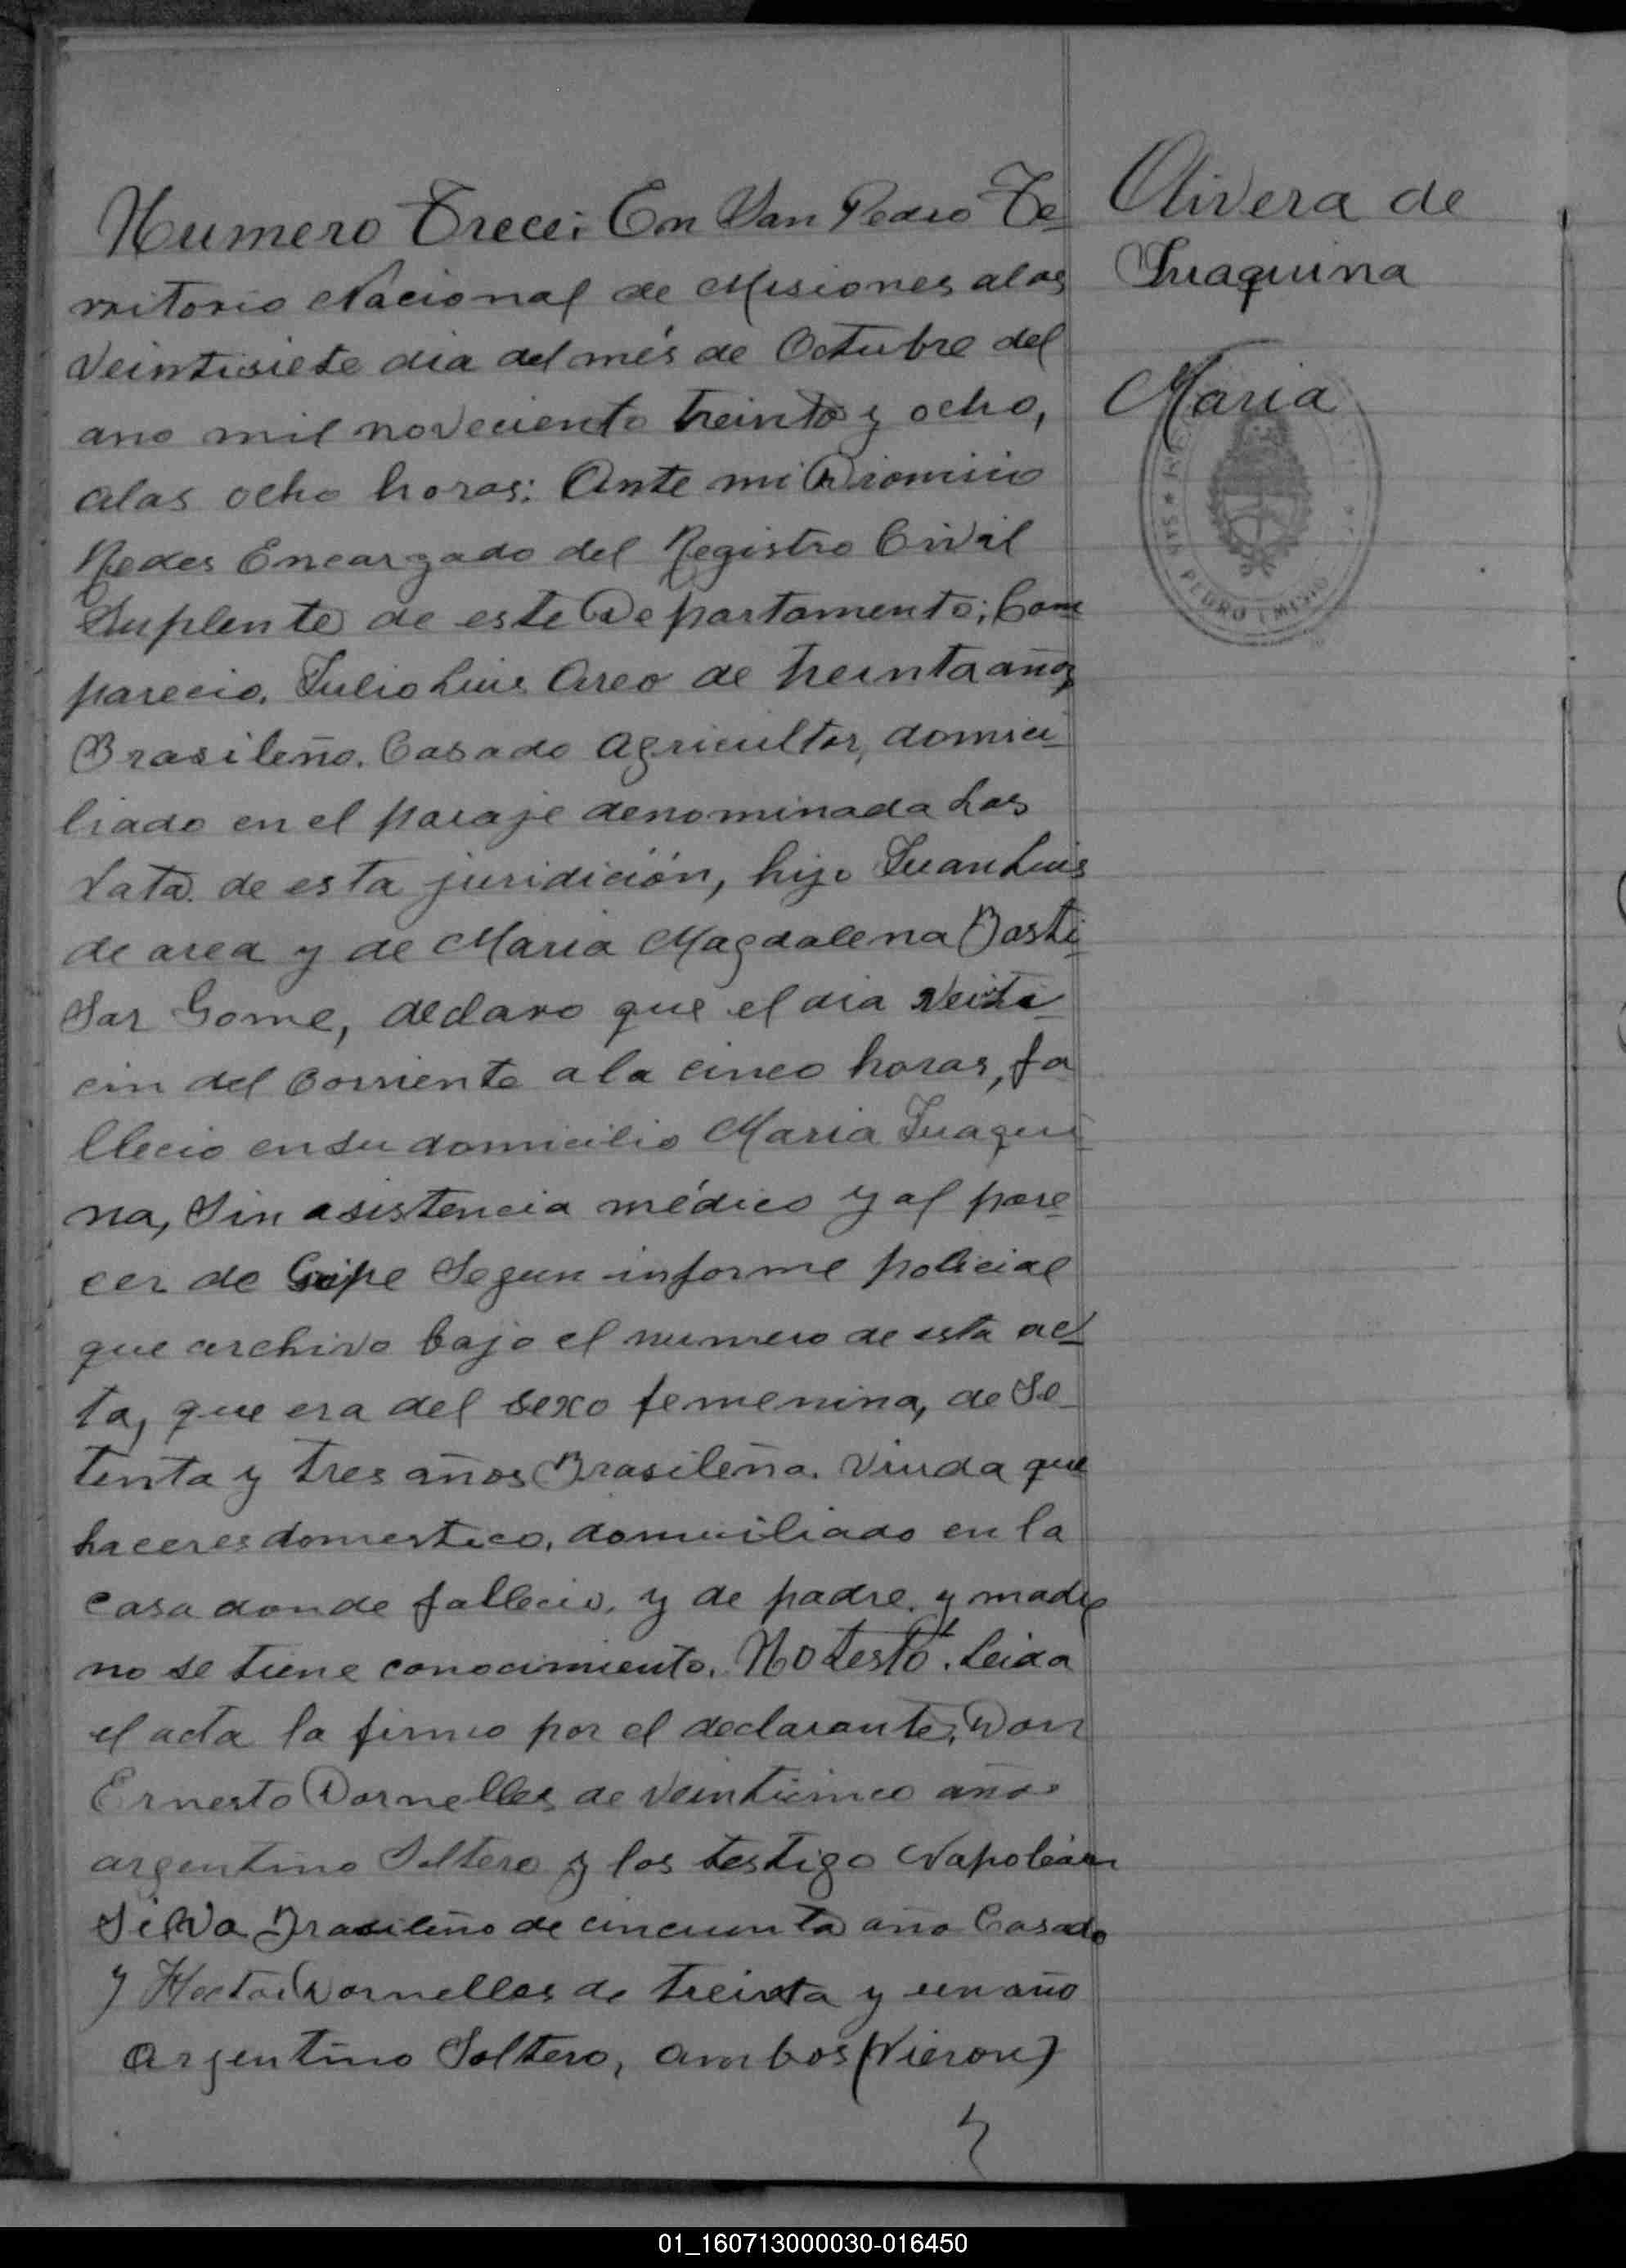 Numero Trece: En San Pedro Te-
rritorio Nacional de Misiones alos
Veintisiete dia del més de Octubre del
ano mil noveciento treinta y ocho,
alas ocho horas: Ante mi Dionicio
Redes Encargado del Registro Civil
Suplente de este Departamento; Com
parecio. Julio Luis Areo de treinta años
Brasileño. Casado Agricultor, domici-
liado en el paraje denominada Las
rata de esta juridición, hijo Juan Luis
de area y de Maria Magdalena Basti-
Sar Gome, declaro que el dia Veinti-
cin del corriente a la cinco horas, fa
llecio en su domicilio Maria Juaqui-
na, Sin asistencia médico y al pare-
cer de Gripe Segun informe policial
que archivo bajo el numero de esta ac-
ta, que era del sexo femenina, de Se-
tenta y tres años Brasileña. Viuda que
haceres domestico, domiciliado en la
casa donde fallecio, y de padre y madre
no se tiene conocimiento. No testó. Leida
el acta la firmo por el declarante, Don
Ernesto Dornelles de Veinticinco años
argentino Soltero y los testigo Napoleón
Silva Brasileño de cincuenta año Casado
y Hector Dornelles de treinta y un año
Argentino Soltero, ambos (Vieron)
Olivera de
Juaquina
Maria
SAN PEDRO (MISIO
01_160713000030-016450